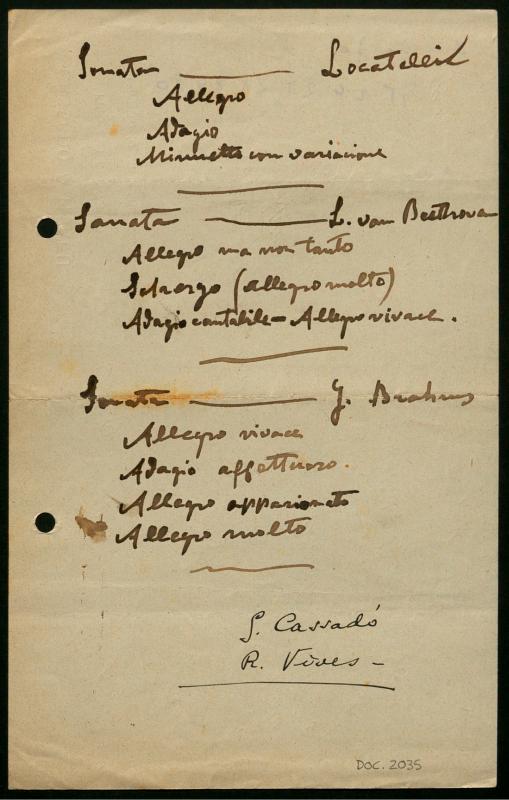 Sonata — Locatelli
Allegro
Adagio
Minuetto con variacione
Sonata — L. van Beethoven
Allegro ma non tanto
Scherzo (allegro molto)
Adagio cantabile = Allegro vivace.
Sonata — J. Brahms
Allegro vivace
Adagio affettuoso.
Allegro appasionato
Allegro molto
G. Cassadó
R. Vives -
DOC. 2035